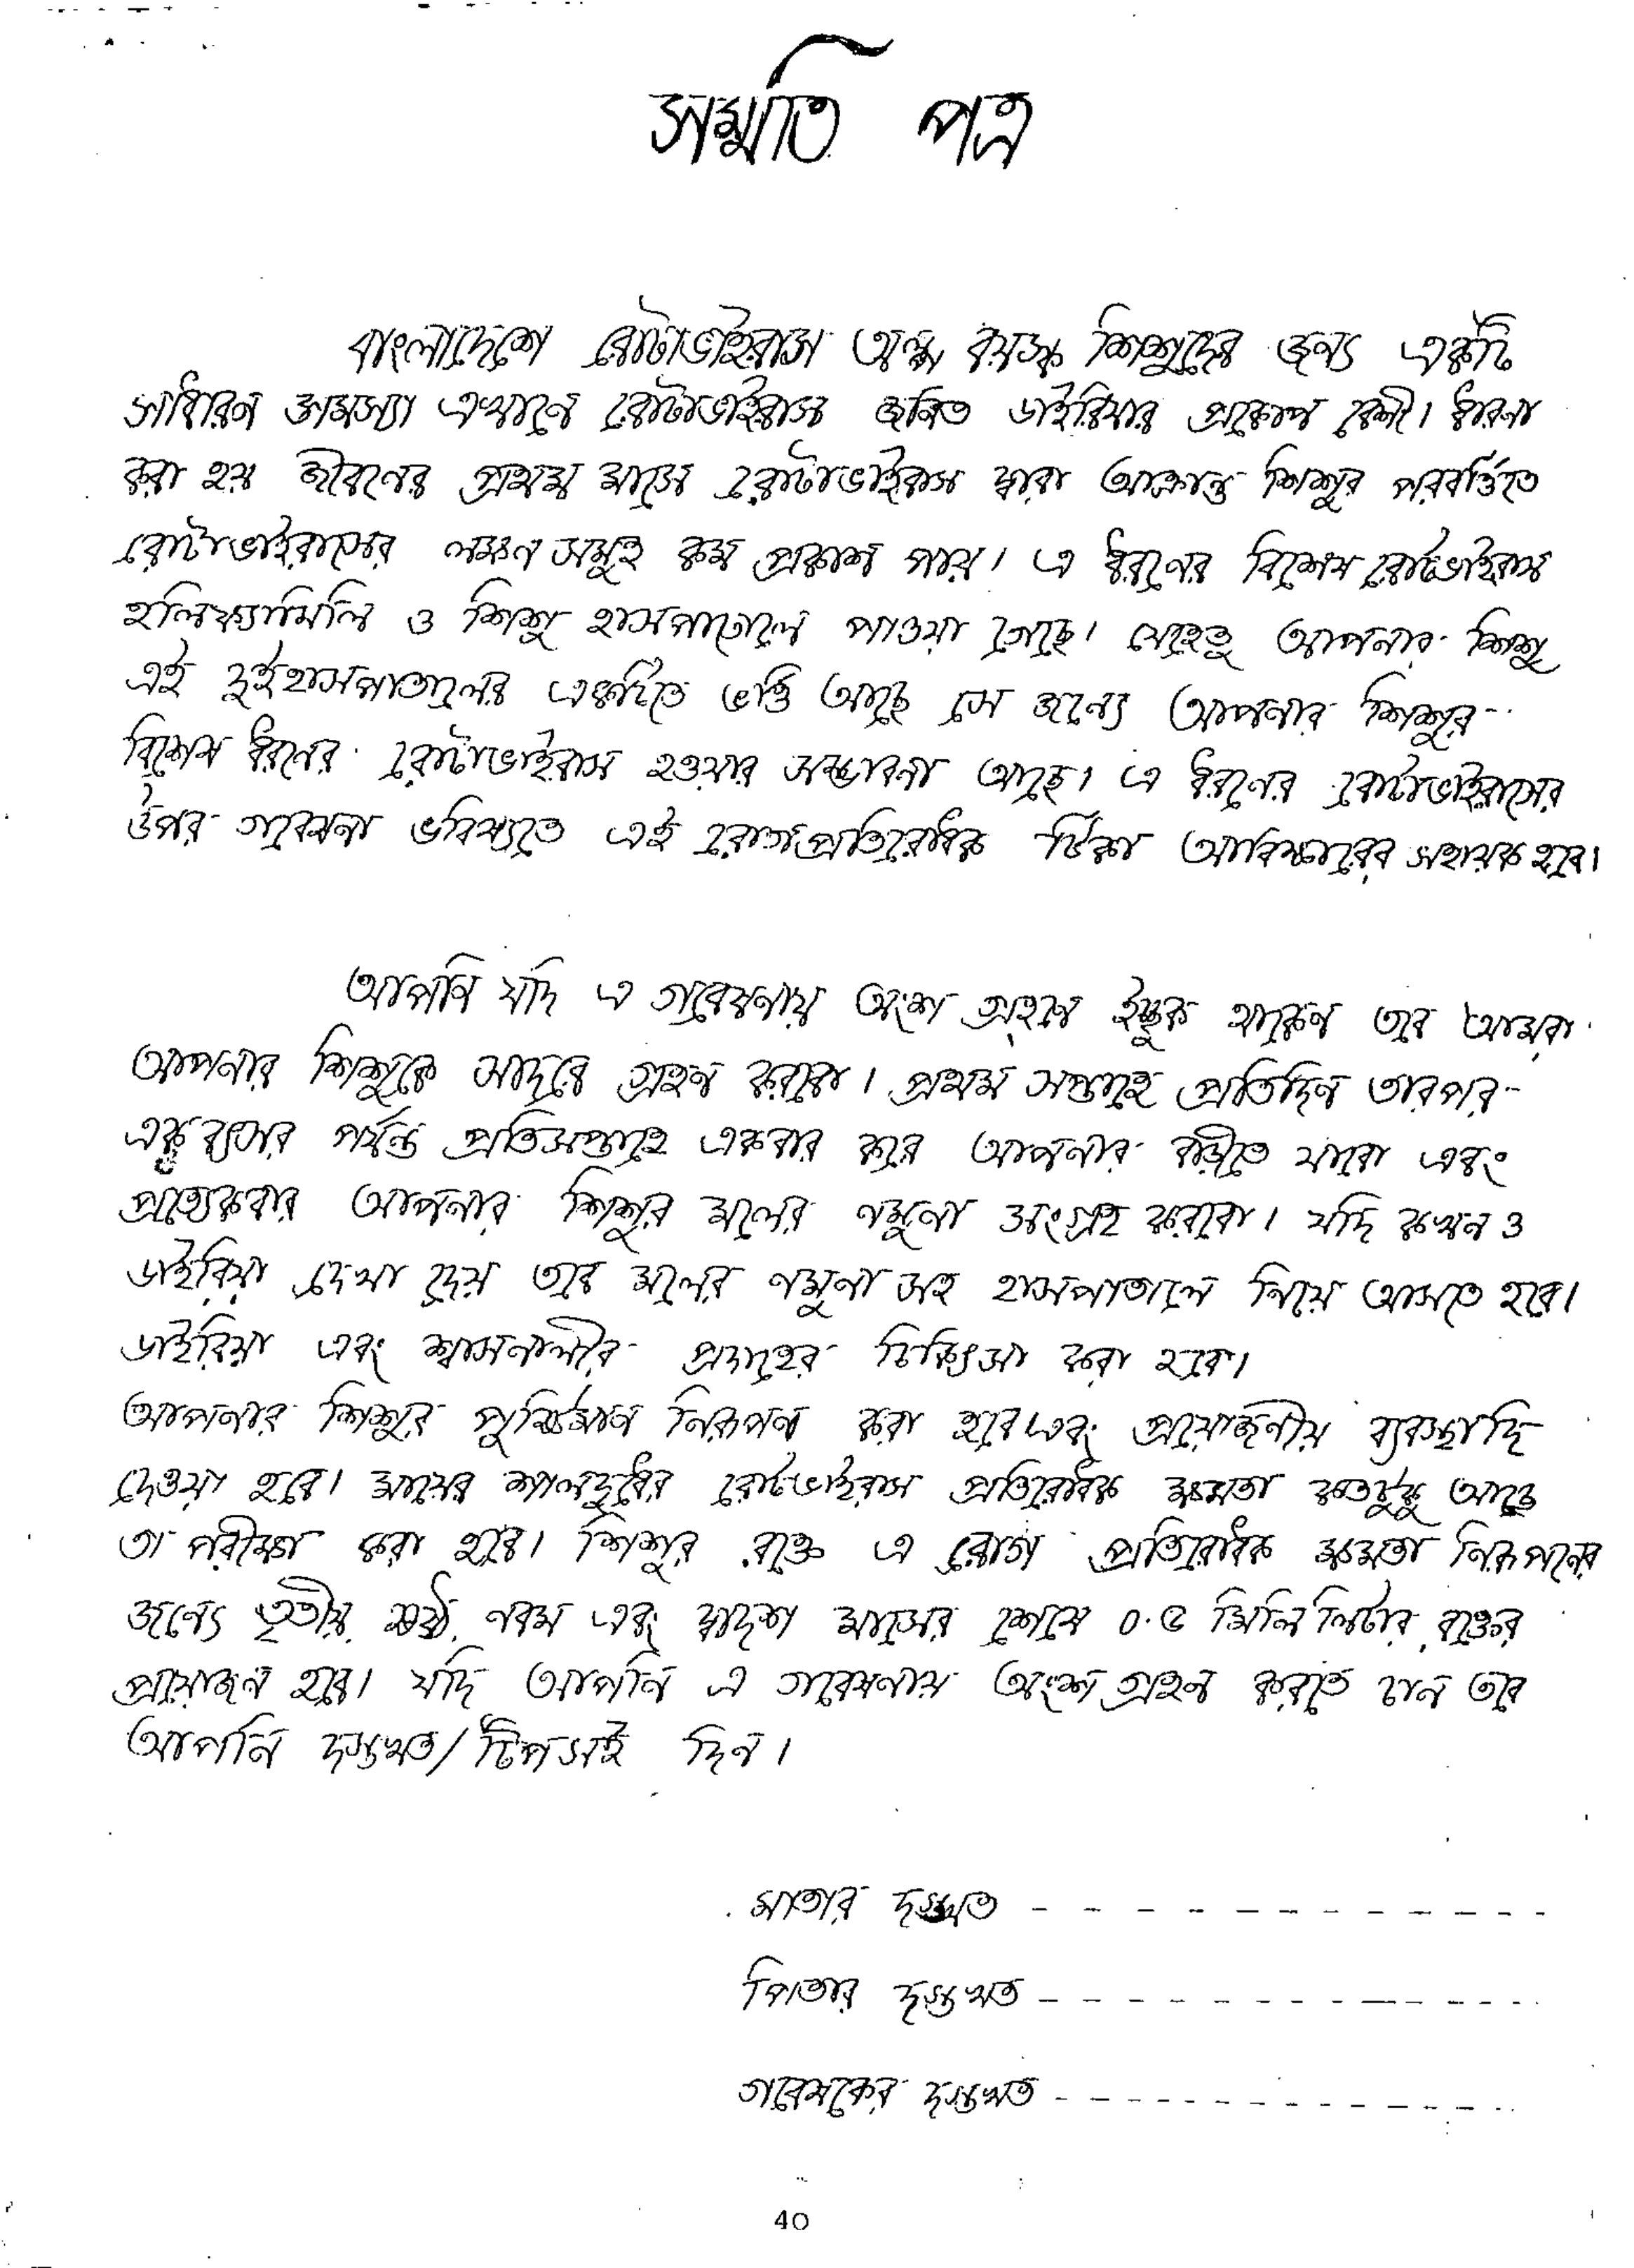 সম্মতি পত্র
বাংলাদেশে রোটাভাইরাস অল্প বয়স্ক শিশুদের জন্য একটি
সাধারন সমস্যা এখানে রোটাভাইরাস জনিত ডাইরিয়ার প্রকোপ বেশী। ধারনা
করা হয় জীবনের প্রথম মাসে রোটাভাইরাস দ্বারা আক্রান্ত শিশুর পরবর্ত্তিতে
রোটাভাইরাসের লক্ষন সমুহ কম প্রকাশ পায়। এ ধরণের বিশেষ রোটাভাইরাস
হলিফ্যামিলি ও শিশু হাসপাতালে পাওয়া গেছে। যেহেতু আপনার শিশু
এই দুইহাসপাতালের একটিতে ভর্ত্তি আছে সে জন্যে আপনার শিশুর
বিশেষ ধরণের রোটাভাইরাস হওয়ার সম্ভাবনা আছে। এ ধরণের রোটাভাইরাসের
উপর গবেষনা ভবিষ্যতে এই রোগপ্রতিরোধক টিকা আবিষ্কারের সহায়ক হবে।
আপনি যদি এ গবেষনায় অংশ গ্রহনে ইচ্ছুক থাকেন তবে আমরা
আপনার শিশুকে সাদরে গ্রহন করবো। প্রথম সপ্তাহে প্রতিদিন তারপর
এক বৎসর পর্যন্ত প্রতিসপ্তাহে একবার করে আপনার বাড়ীতে যাবো এবং
প্রত্যেকবার আপনার শিশুর মলের নমুনা সংগ্রহ করবো। যদি কখন ও
ডাইরিয়া দেখা দেয় তবে মলের নমুনা সহ হাসপাতালে নিয়ে আসতে হবে।
ডাইরিয়া এবং শ্বাসনালীর প্রদাহের চিকিৎসা করা হবে।
আপনার শিশুর পুষ্টিমান নিরূপন করা হবে এবং প্রয়োজনীয় ব্যবস্থাদি
দেওয়া হবে। মায়ের শালদুধের রোটাভাইরাস প্রতিরোধক ক্ষমতা কতটুকু আছে
তা পরীক্ষা করা হবে। শিশুর রক্তে এ রোগ প্রতিরোধক ক্ষমতা নিরূপনের
জন্যে তৃতীয়, ষষ্ঠ, নবম এবং দ্বাদশ মাসের শেষে ০.৫ মিলি লিটার রক্তের
প্রয়োজন হবে। যদি আপনি এ গবেষনায় অংশ গ্রহন করতে চান তবে
আপনি দস্তখত/টিপসই দিন।
মাতার দস্তখত - - - - - - - - - - - -
পিতার দস্তখত - - - - - - - - - - - -
গবেষকের দস্তখত - - - - - - - - - - - -
40